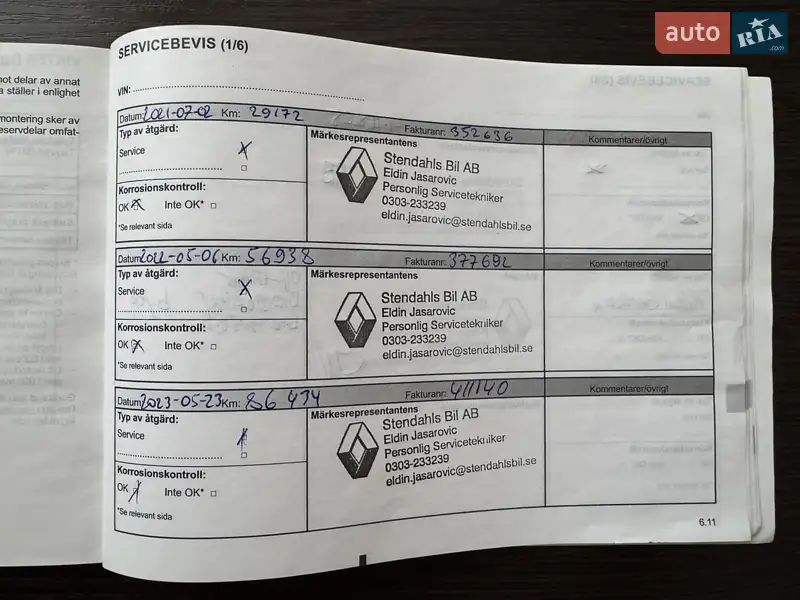 auto RIA .com
not delar av annat
a ställer i enlighet
montering sker av
eservdelar omfat-
SERVICEBEVIS (1/6)
VIN:
Datum: 2021-07-02 Km: 29172 Fakturanr: 352636 Kommentarer/övrigt
Typ av åtgärd:
Service
Korrosionskontroll:
OK Inte OK*
*Se relevant sida
Märkesrepresentantens
Stendahls Bil AB
Eldin Jasarovic
Personlig Servicetekniker
0303-233239
eldin.jasarovic@stendahlsbil.se
Datum: 2022-05-06 Km: 56938 Fakturanr: 377692 Kommentarer/övrigt
Typ av åtgärd:
Service
Korrosionskontroll:
OK Inte OK*
*Se relevant sida
Märkesrepresentantens
Stendahls Bil AB
Eldin Jasarovic
Personlig Servicetekniker
0303-233239
eldin.jasarovic@stendahlsbil.se
Datum: 2023-05-23 Km: 86 434 Fakturanr: 411140 Kommentarer/övrigt
Typ av åtgärd:
Service
Korrosionskontroll:
OK Inte OK*
*Se relevant sida
Märkesrepresentantens
Stendahls Bil AB
Eldin Jasarovic
Personlig Servicetekniker
0303-233239
eldin.jasarovic@stendahlsbil.se
6.11